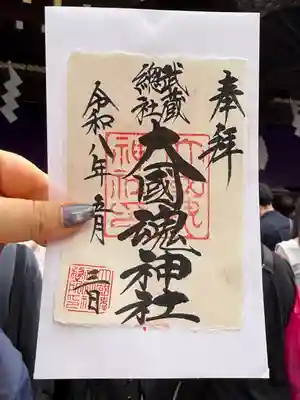 奉拝
武蔵
總社
大國魂神社
令和八年五月
三日